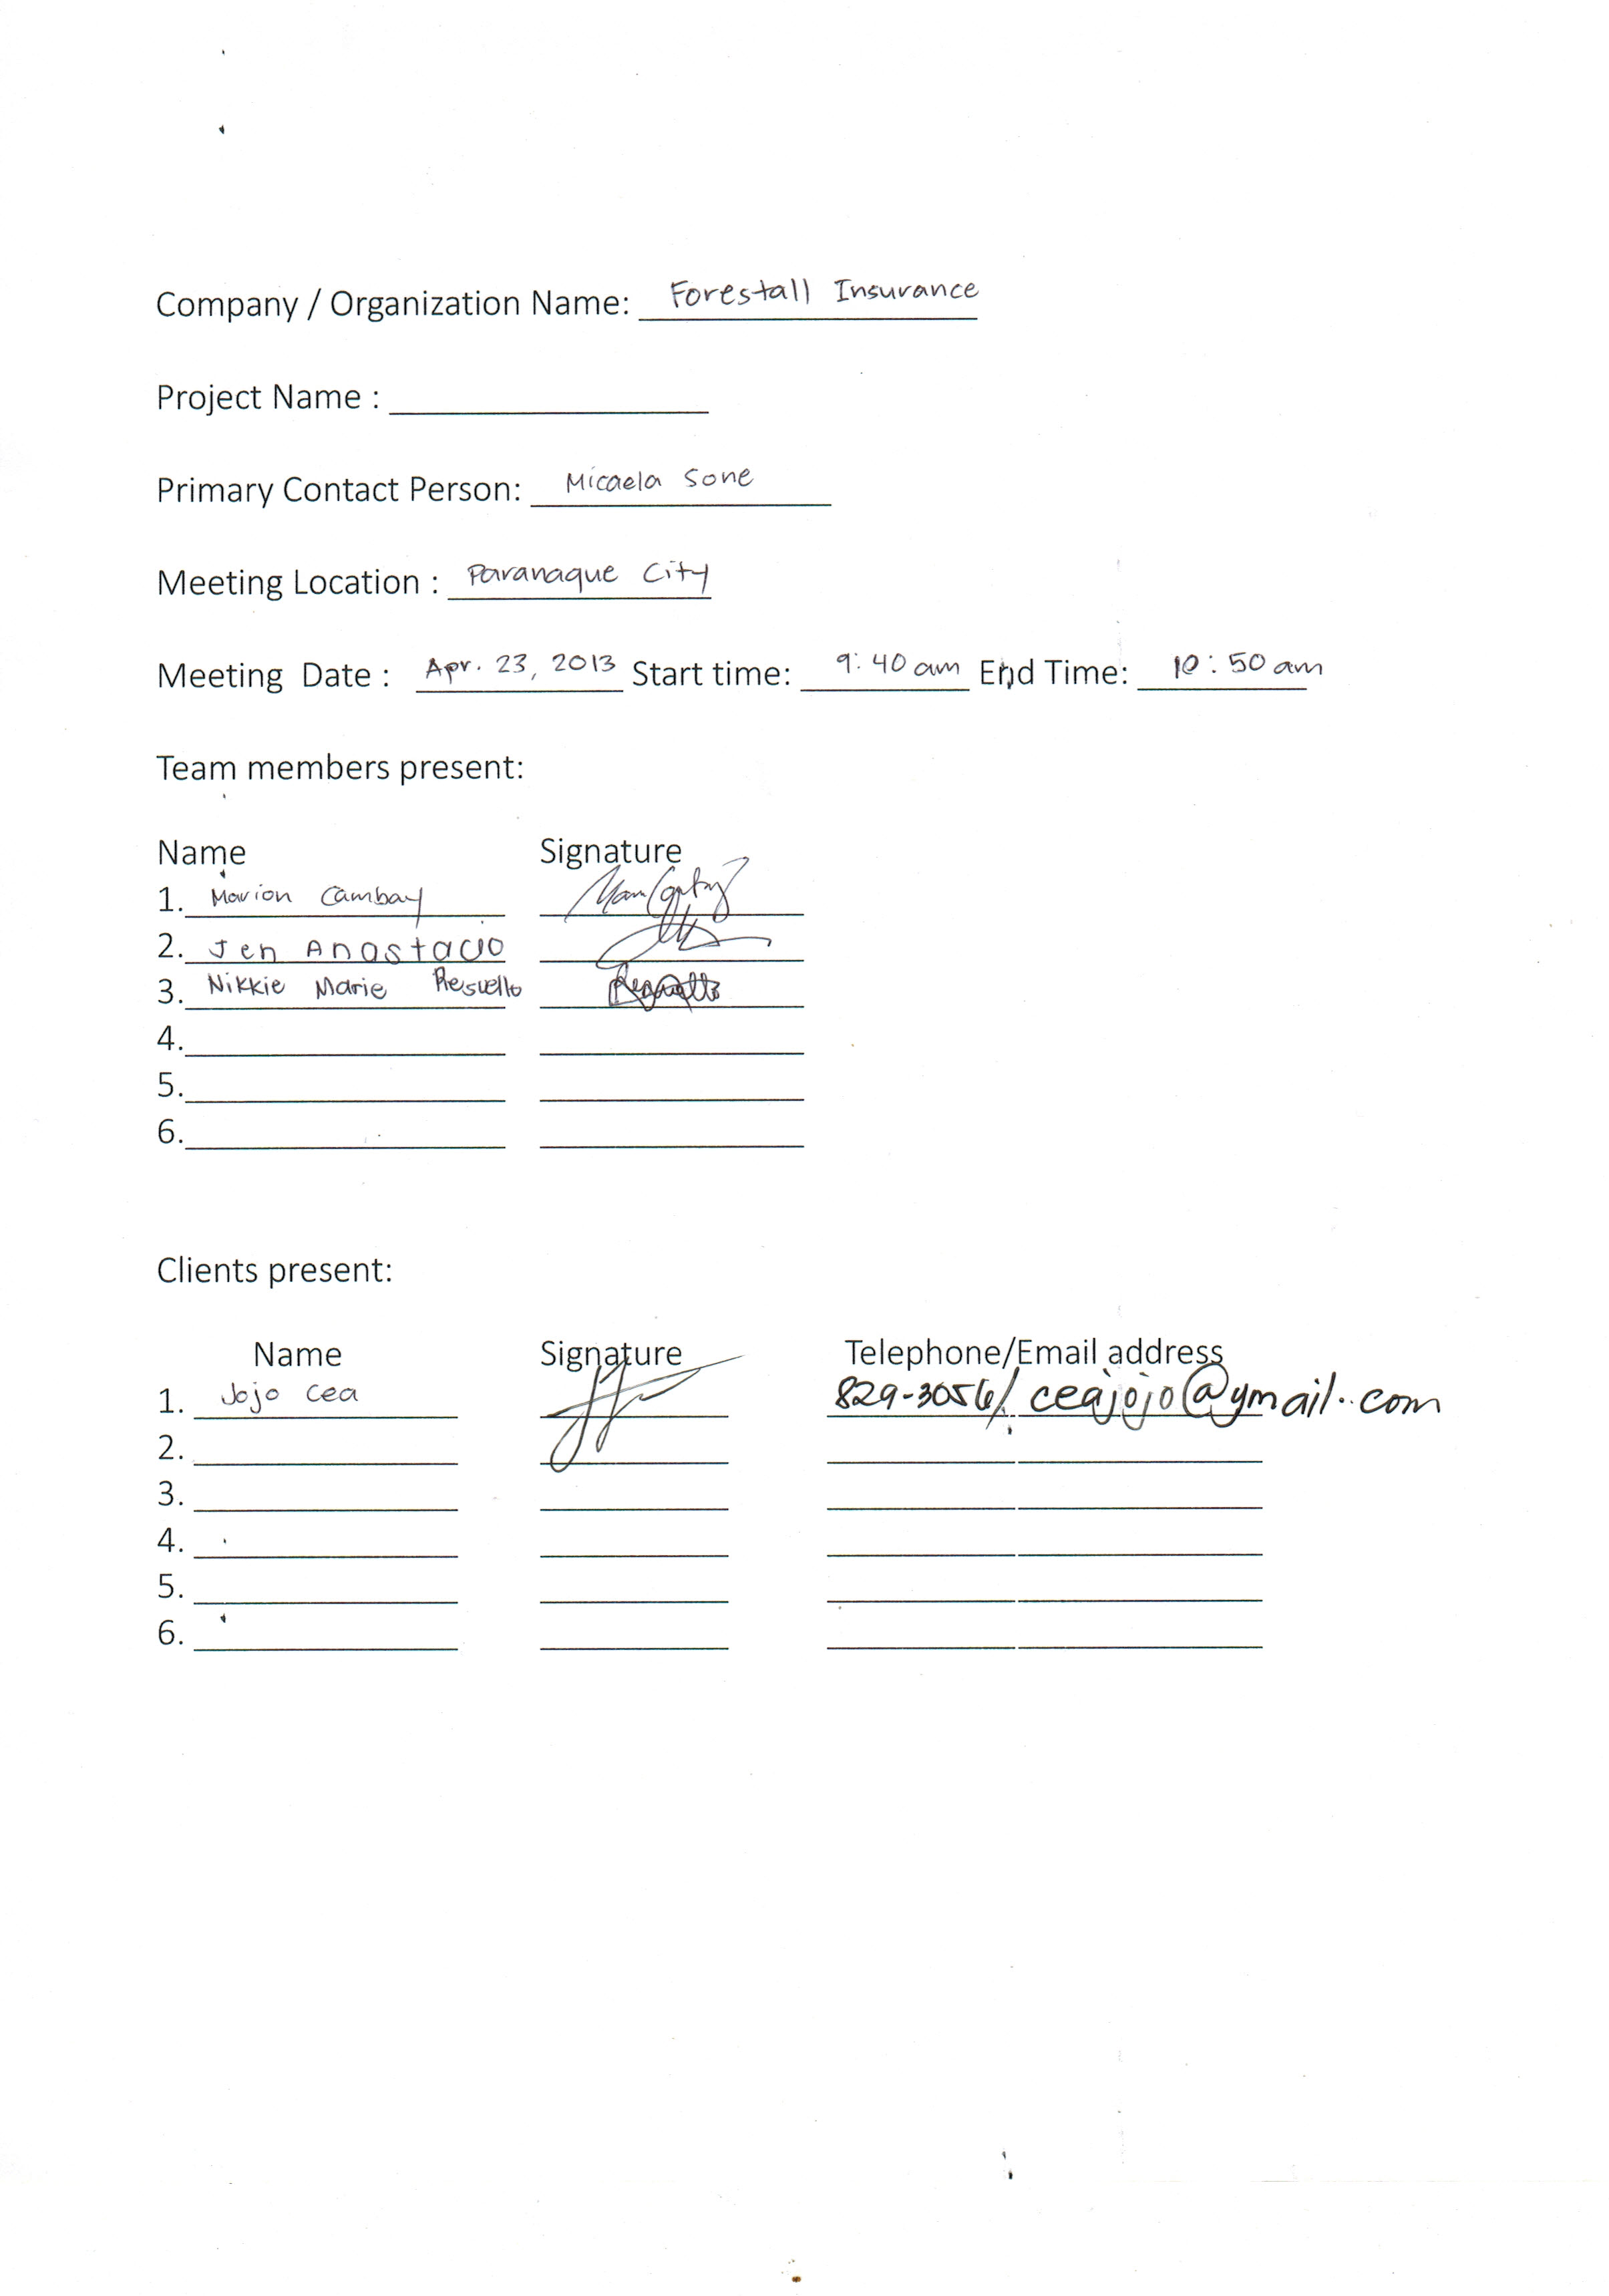 Company / Organization Name: Forestall Insurance
Project Name :
Primary Contact Person: Micaela Sone
Meeting Location : Paranaque City
Meeting Date : Apr. 23, 2013 Start time: 9:40 am End Time: 10:50 am
Team members present:
Name Signature
1. Marion Cambay
2. Jen Anastacio
3. Nikkie Marie Resuello
4.
5.
6.
Clients present:
Name Signature Telephone/Email address
1. Jojo Cea 829-3056/ ceajojo@ymail.com
2.
3.
4.
5.
6.